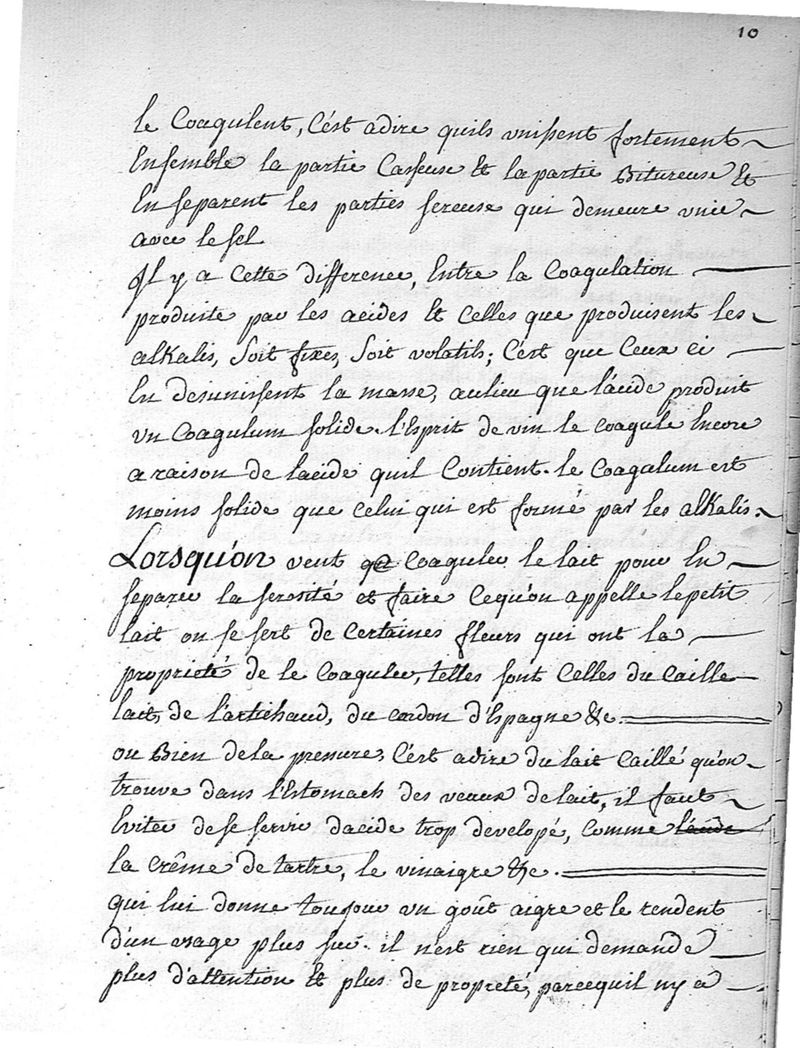 10
le Coagulent, C'est adire quils unissent fortement
Ensemble la partie Caseuse Et la partie Bitureuse Et
En separent les parties sereuse qui demeure unie
avec le sel
Il y a Cette difference, Entre la Coagulation
produite par les acides Et Celles que produisent les
alKalis, Soit fixes, Soit volatils; C'est que Ceux ci
En desunissent la masse, aulieu que l'acide produit
un Coagulum solide. l'Esprit de vin le coagule Encore
a raison de lacide quil Contient. le Coagulum est
moins solide que celui qui est formé par les alKalis.
Lorsqu'on veut Coaguler le lait pour En
separer la serosité et faire Cequ'on appelle le petit
lait on se sert de Certaines fleurs qui ont la
proprieté de le Coaguler, telles sont Celles du Caille
lait, de l'artichaud, du cardon d'Espagne &c.
ou Bien dela presure, C'est adire du lait Caillé qu'on
trouve dans l'Estomach des veaux de lait, il faut
Eviter de se servir dacide trop developé, Comme l'acide
la crême de tartre, le vinaigre &c.
qui lui donne toujour un goût aigre et le rendent
d'un usage plus sur. il n'est rien qui demande
plus d'attention Et plus de propreté, parcequil ny a